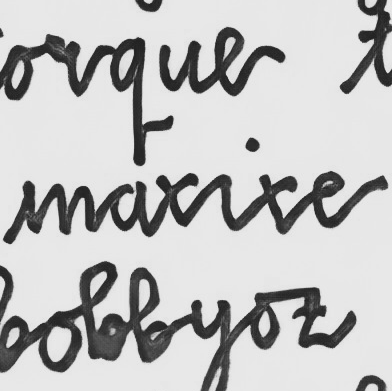 torque
maxixe
bobbyoz